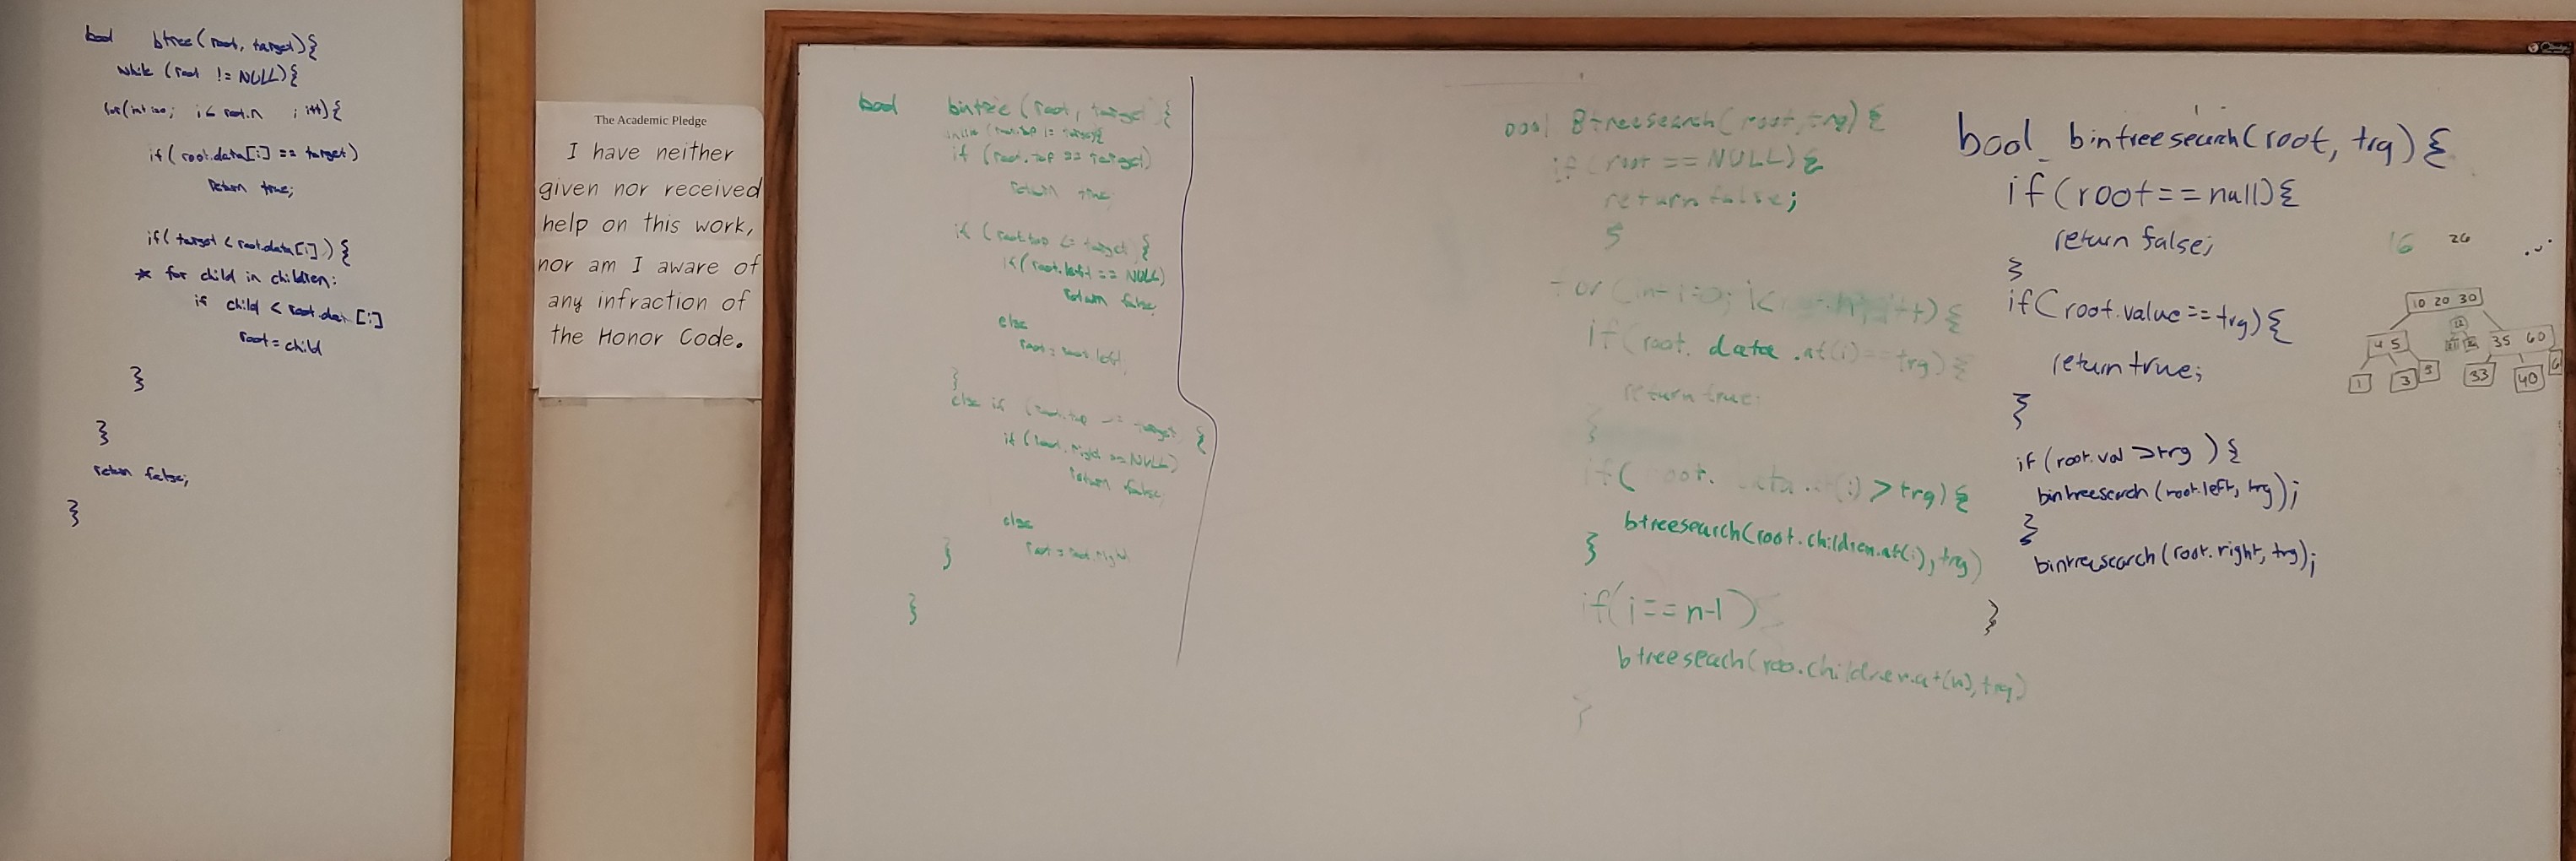 bool btree(root, target){
while (root != NULL){
for(int i=0; i< root.n ; i++){
if( root.data[i] == target)
return true;
if( target < root.data[i]) {
* for child in children:
if child < root.dat [i]
root = child
}
}
return false;
}
The Academic Pledge
I have neither
given nor received
help on this work,
nor am I aware of
any infraction of
the Honor Code.
bool bintree (root, target {
while (root.top != target){
if (root.top == target)
return true;
if (root.top <= target) {
if(root.left == NULL)
return false;
else
root = root.left;
}
else if (root.top target {
if (root.right == NULL)
return false;
else
root = root.right
}
}
bool Btreesearch(root, trg) {
if(root == NULL){
return false;
}
for(int i=0; i< i++){
if(root. data .at(i)==trg){
return true;
}
if( root. data.at(i) > trg){
btreesearch(root.children.at(i), trg)
}
if(i==n-1)
btreeseach(roo.children.at(n), trg)
}
bool bintreesearch(root, trg) {
if(root==null){
return false;
}
if(root.value==trg){
return true;
}
if (root.val >trg ) {
bintreesearch(root.left, trg);
}
bintreesearch(root.right, trg);
}
16 26
10 20 30
4 5
35 60
1 3 9 33 40